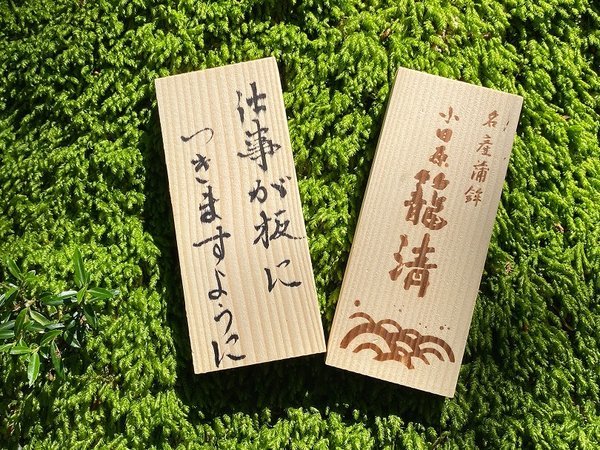 仕事が板に
つきますように
名産蒲鉾
小田原
籠清